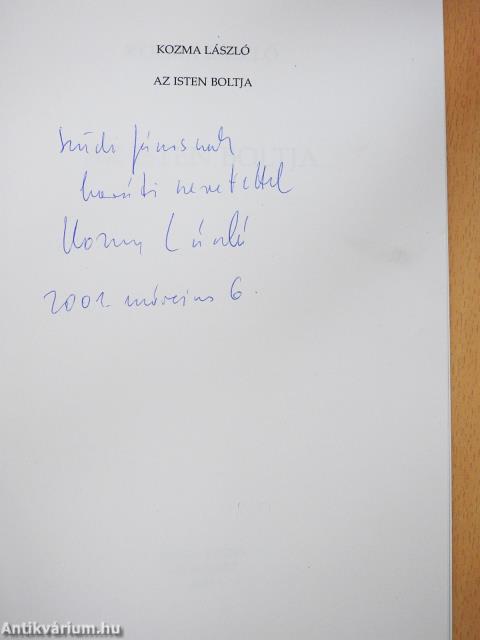 KOZMA LÁSZLÓ
AZ ISTEN BOLTJA
Szűdi Jánosnak
baráti szeretettel
Kozma László
2001. március 6.
Antikvárium.hu